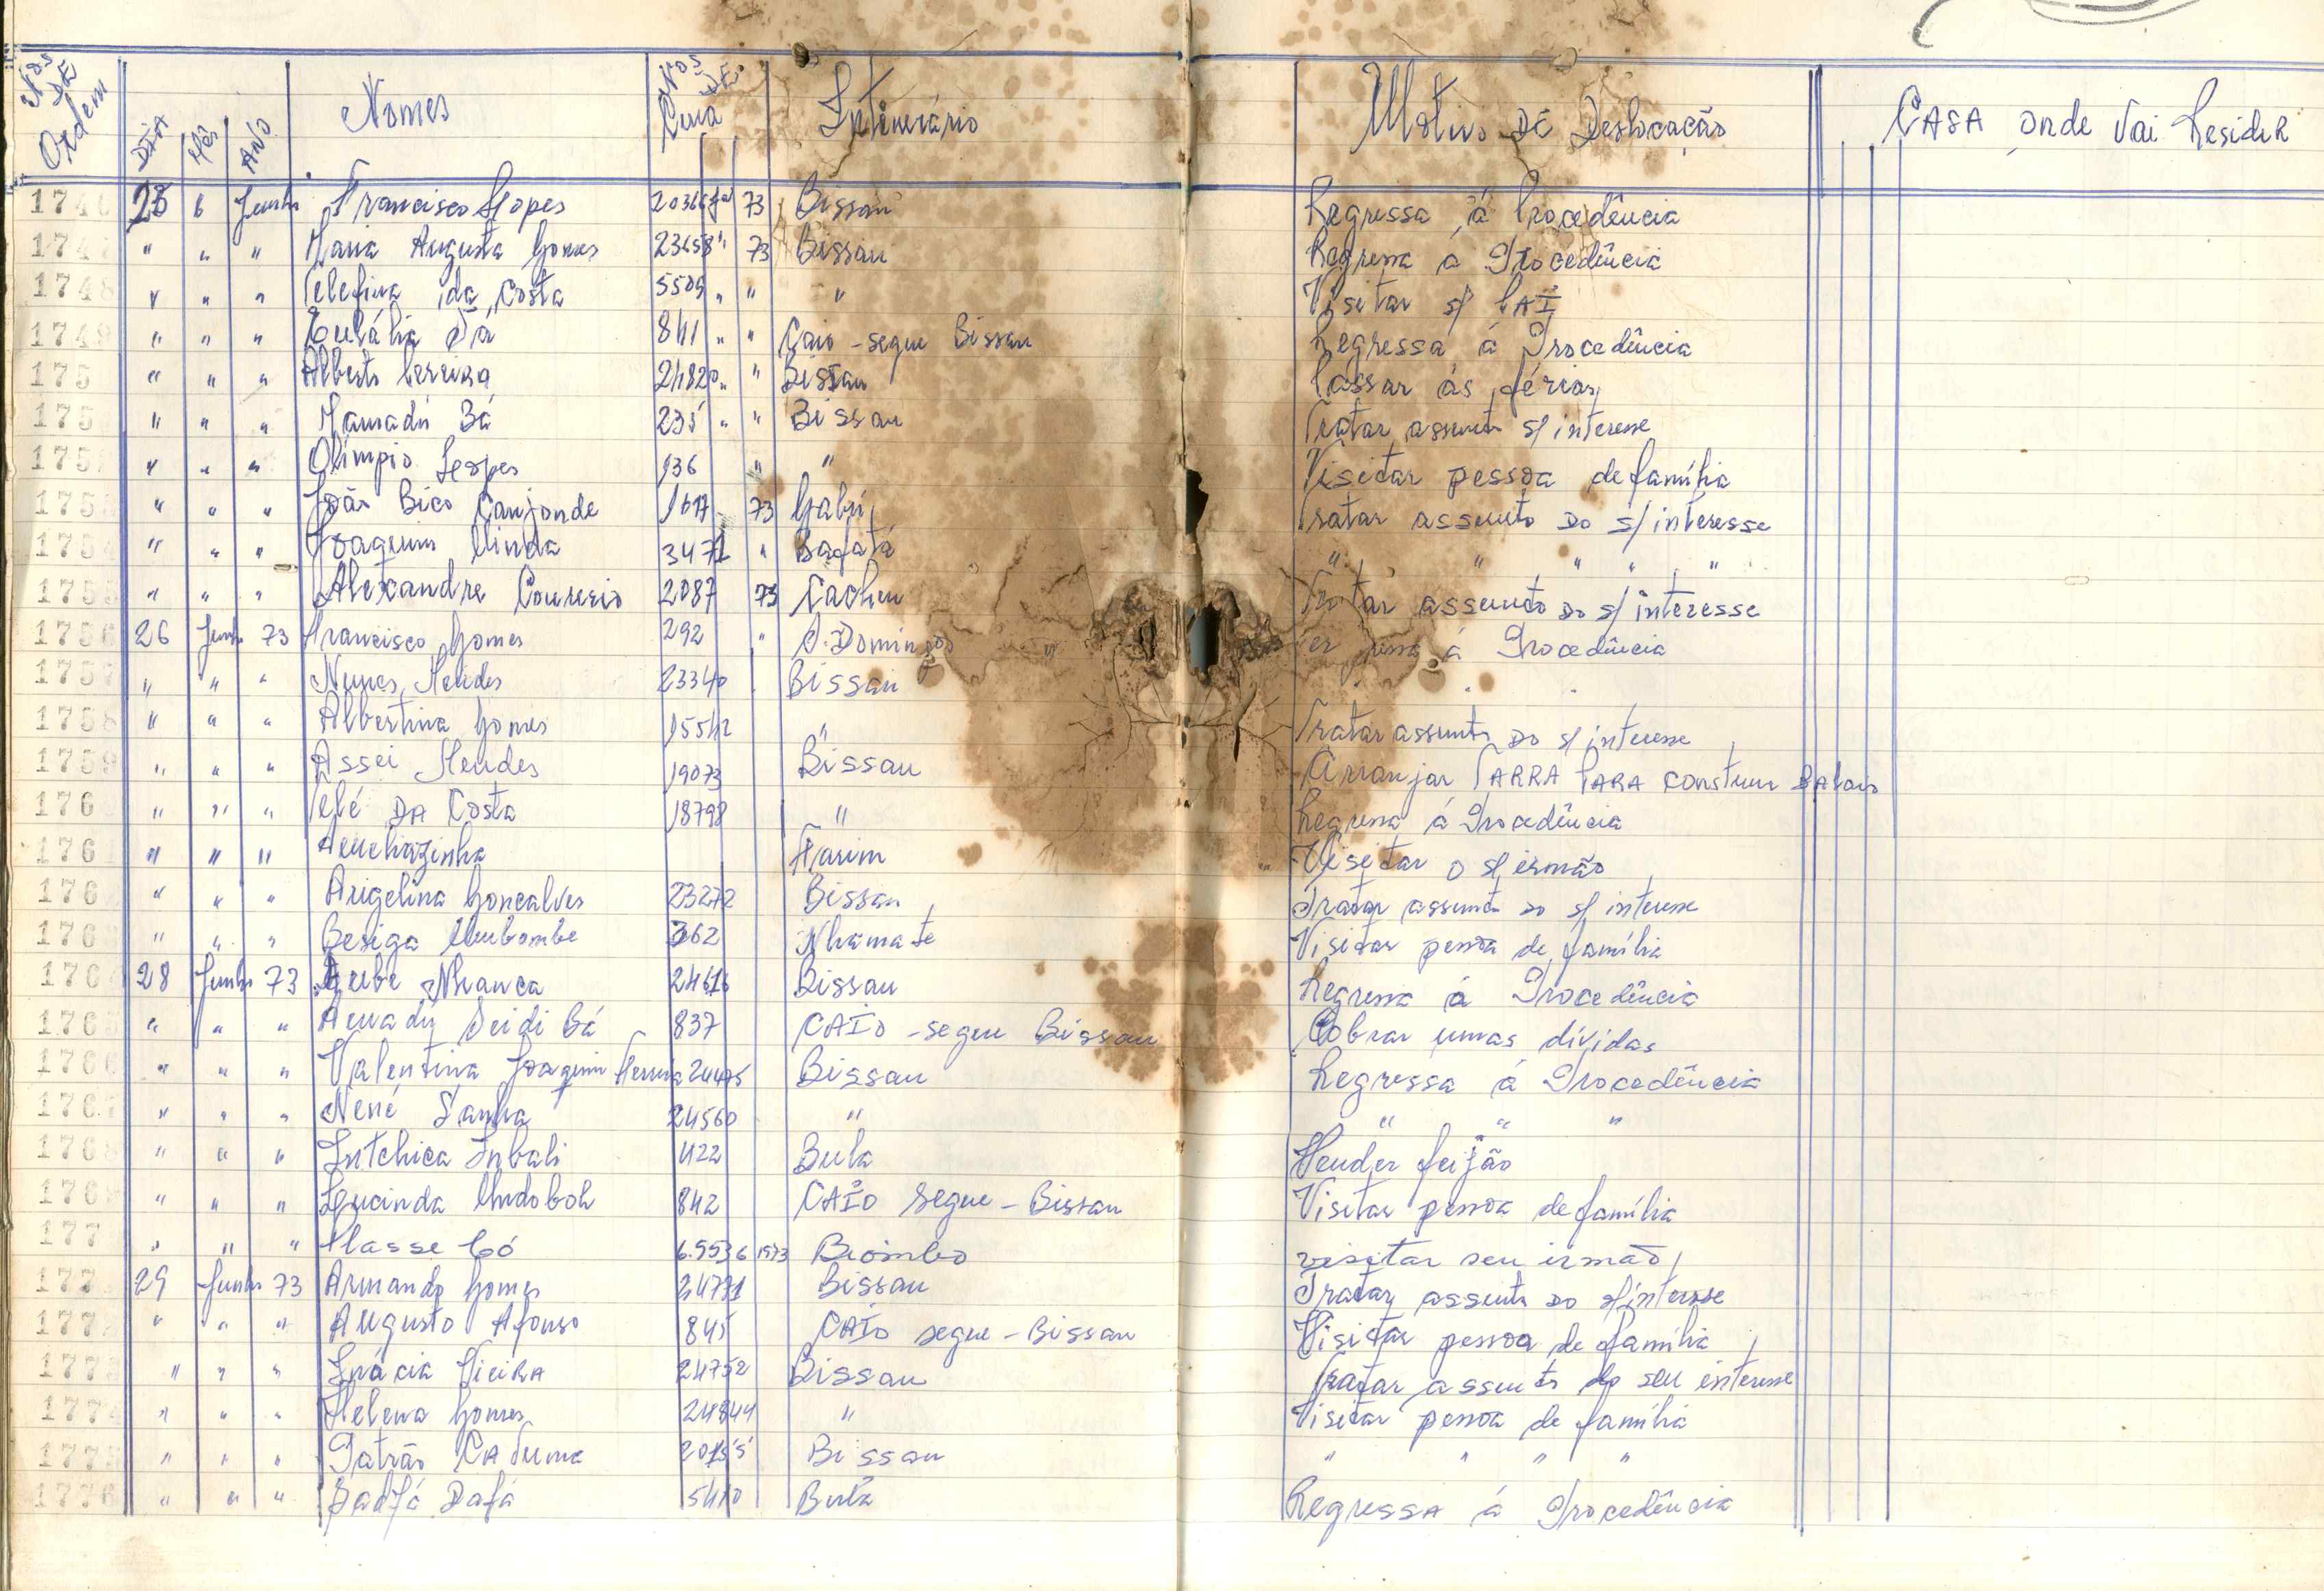 Nos DE Ordem DIA Mês ANO Nomes Nos DE Intinerário Motivo DE Deslocação CASA onde Vai Residir
1746 25 6 Junho Francisco Lopes 20366 73 Bissau Regressa á Procedência
1747 " " " Maria Augusta Gomes 23658 " 73 Bissau Regressa á Procedência
1748 " " " da Costa 5509 " " " Visitar s/ PAI
1749 " " " Eulália Sá 841 " " Caio - segue Bissau Regressa á Procedência
175 " " " Alberto Pereira 24820 " " Bissau Passar ás férias
175 " " " Mamadú Bá 235 " " Bissau Tratar assunto s/ interesse
175 " " " Olímpio Lopes 936 " " Visitar pessoa de família
1753 " " " João Bico Canjonde 1617 73 Gabú Tratar assunto do s/ interesse
1754 " " " Joaquim 3471 " Bafatá " " " " "
1755 " " " Alexandre 2087 73 Cacheu Tratar assunto do s/ interesse
1756 26 Junho 73 Francisco Gomes 292 " S. Domingos á Procedência
1757 " " " Nunes Mendes 23340 Bissau " " "
1758 " " " Albertina Gomes 15542 " Tratar assunto do s/ interesse
1759 " " " Assei Mendes 19073 Bissau Arranjar TARRA PARA construir Balaio
176 " " " DA Costa 18798 " Regressa á Procedência
176 " " " Farim Visitar o s/ irmão
176 " " " Angelina Goncalves 23272 Bissau Tratar assunto do s/ interesse
176 " " " Besiga 362 Nhamate Visitar pessoa de família
176 28 Junho 73 Nhanca 24616 Bissau Regressa á Procedência
1765 " " " Seidi Bá 837 CAIO - segue Bissau Cobrar umas dívidas
1766 " " " Valentina Joaquim 24475 Bissau Regressa á Procedência
1767 " " " Nené Sanha 24560 " " " "
1768 " " " Intchica Inbali 422 Bula Vender feijão
1769 " " " Lucinda 842 CAIO Segue - Bissau Visitar pessoa de família
177 " " " Có 6.5536 1973 Biombo visitar seu irmão
177 29 Junho 73 Armando Gomes 24771 Bissau Tratar assunto do s/ interesse
177 " " " Augusto Afonso 845 CAIO segue - Bissau Visitar pessoa de família
1773 " " " Inácia Vieira 24752 Bissau Tratar assunto do seu interesse
1774 " " " Helena Gomes 24844 " Visitar pessoa de família
1775 " " " Patrão 20155 Bissau " " " "
1776 " " " Dafá 5410 Bula Regressa á Procedência